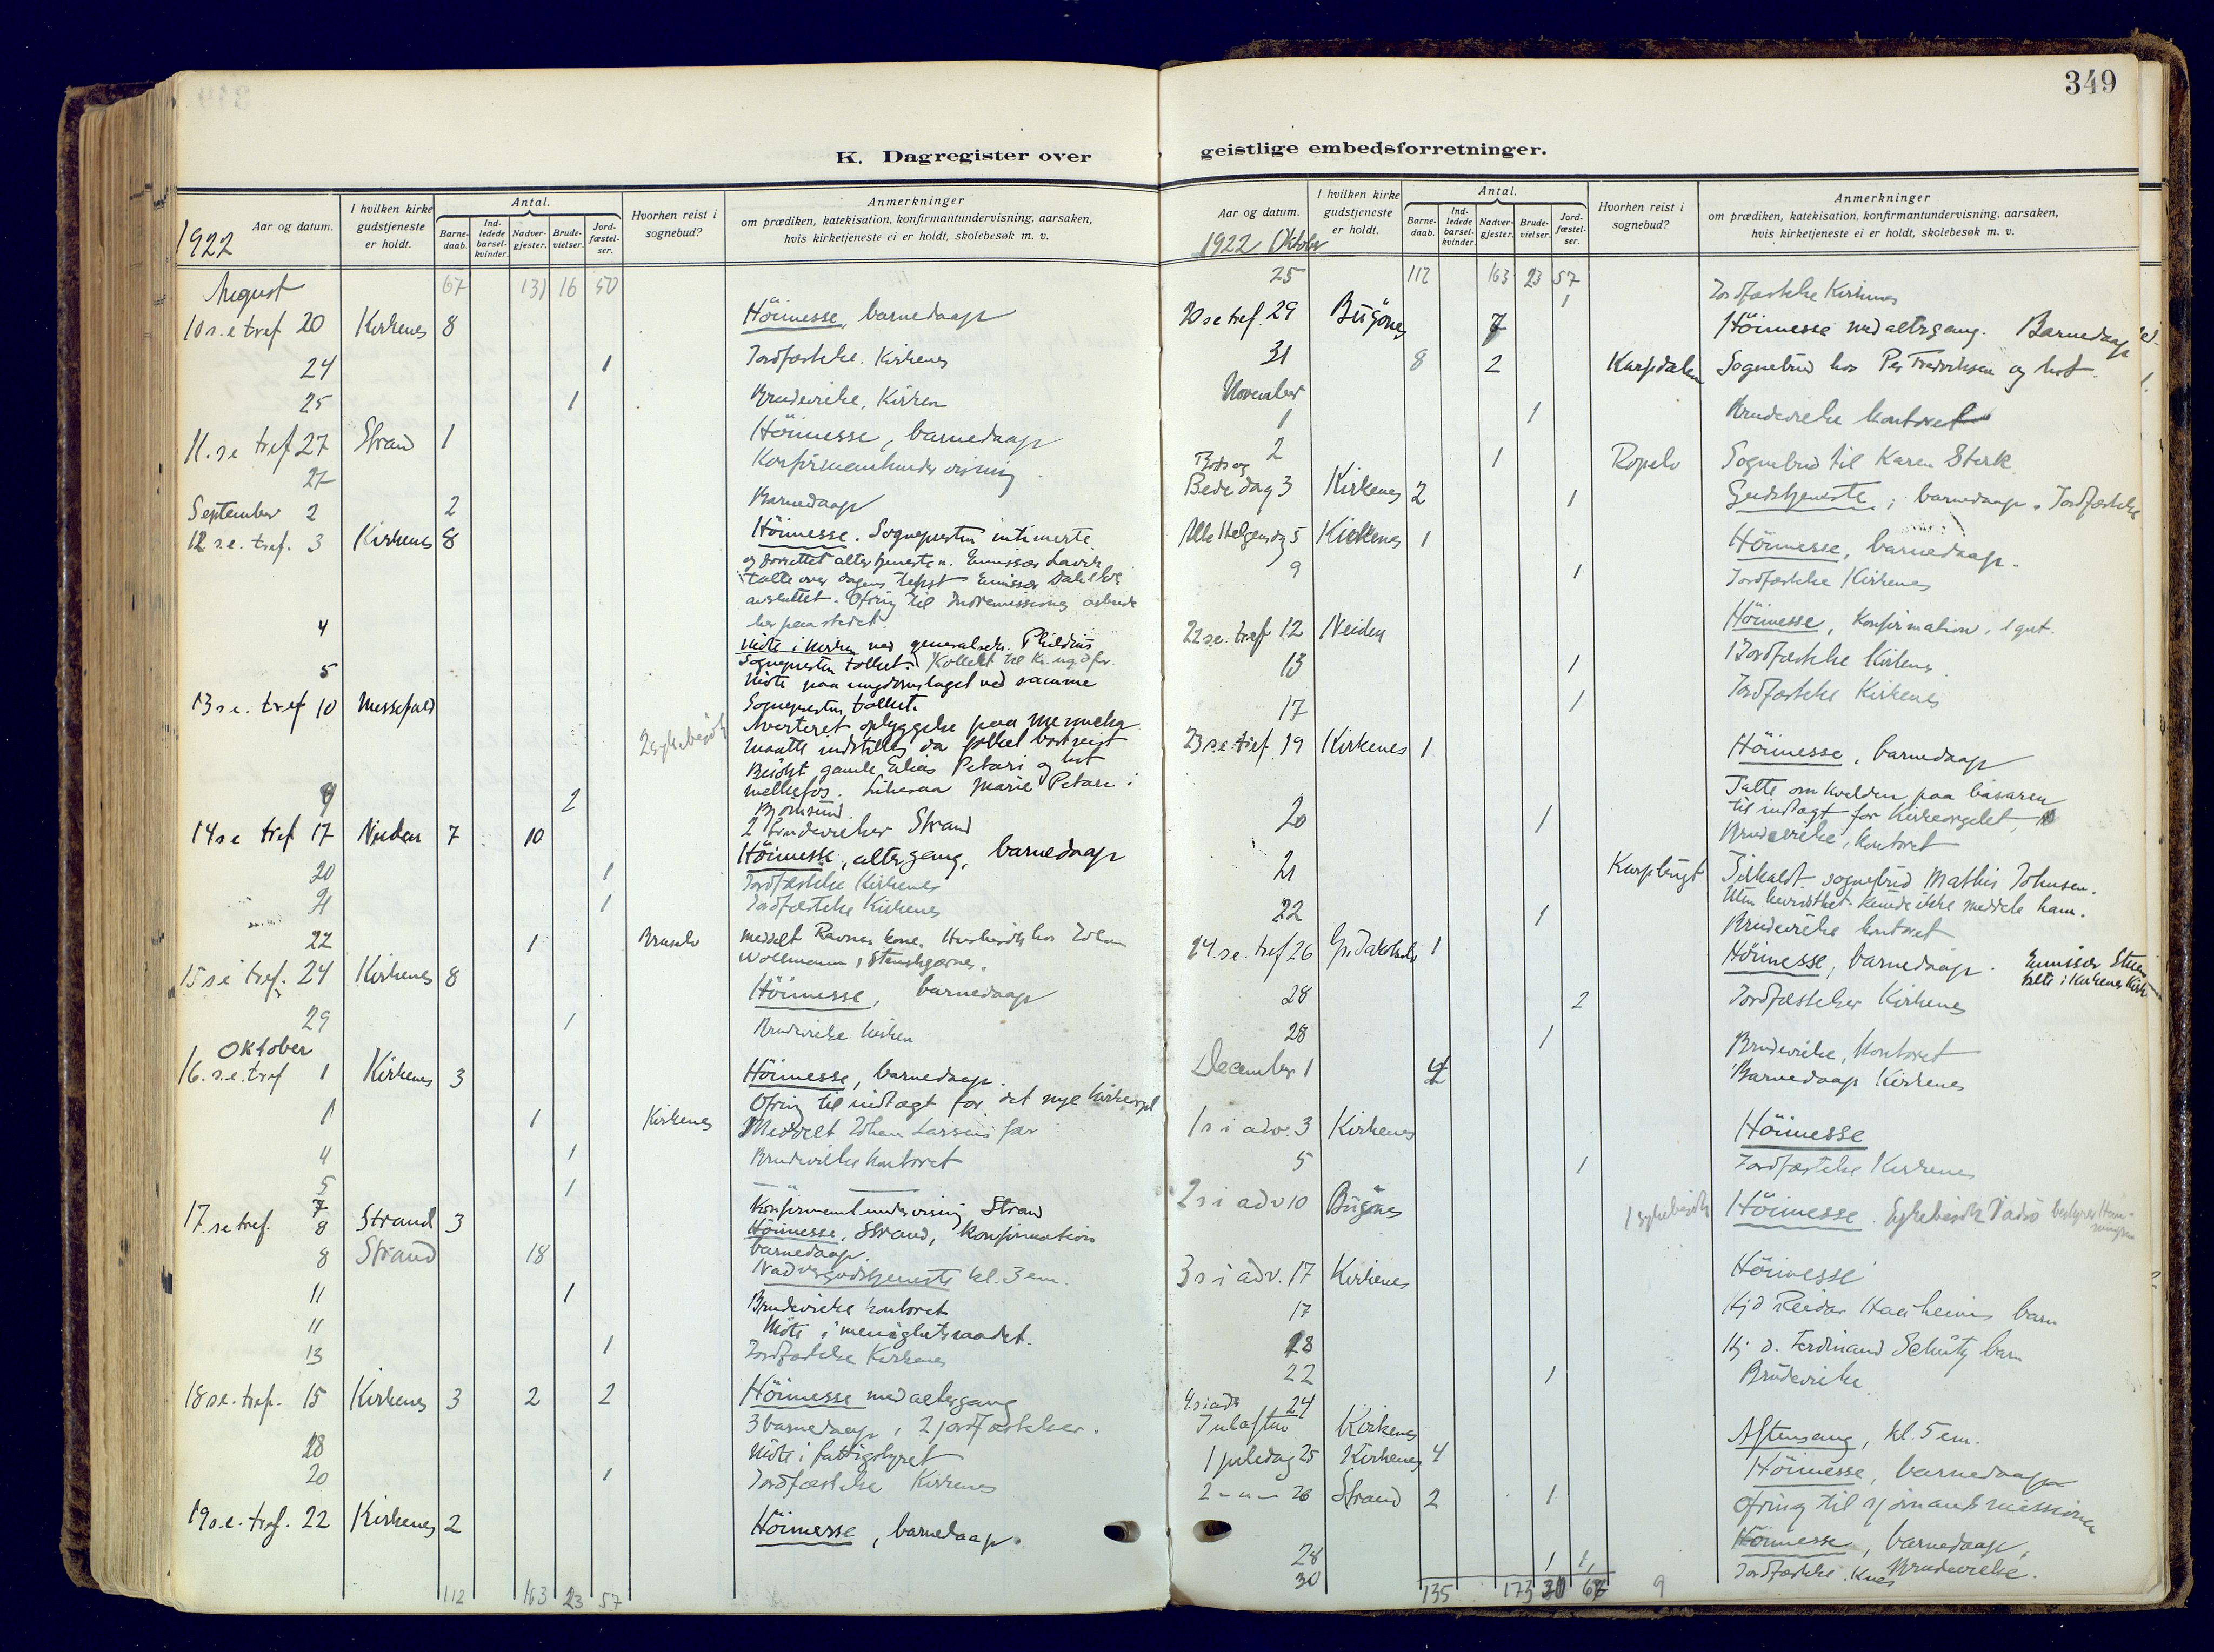 349
K. Dagregister over
1922
Aar og datum.
I hvilken kirke gudstjeneste er holdt.
Antal.
Barnedaab.
Indledede barselkvinder.
Nadvergjester.
Brudevielser.
Jordfæstelser.
Hvorhen reist i sognebud?
Anmerkninger
om prædiken, katekisation, konfirmantundervisning, aarsaken,
hvis kirketjeneste ei er holdt, skolebesøk m. v.
August 67 131 16 50
10 s. e tref 20 Kirkenes 8 Höimesse, barnedaap
24 1 Jordfæstelse. Kirkenes
25 1 Brudevielse, Kirken
11. s e tref 27 Strand 1 Höimesse, barnedaap
27 Konfirmantundervisning.
September 2 2 Barnedaap
12 s. e. tref. 3 Kirkenes 8 Höimesse. Sognepresten intimerte
og forrettet altertjenesten. Emissær Lavik
talte over dagens tekst Emissær
avsluttet. Ofring til Indremissionens arbeide
her paa stedet.
4 Möte i kirken ved generalsekr.
Sognepresten tolket. Kollekt til Kr. ungd for.
5 Möte paa ungdomslaget ved samme
Sognepresten tolket.
13 s e. tref 10 2 sykebesök Averteret opbyggelse paa
maatte indstilles da folket bortreist
Besökt gamle Elias Petari og hst
Likesaa Marie Petari i
9 2 2 brudevielser Strand
14 s e tref 17 Neiden 7 10 Höimesse, altergang, barnedaap
20 1 Jordfæstelse Kirkenes
21 1 Jordfæstelse Kirkenes
22 1 meddelt Ravnas kone. Husbesök hos Johan
Wollmann,
15 s e tref. 24 Kirkenes 8 Höimesse, barnedaap
29 1 Brudevielse kirken
Oktober
16. s. e. tref 1 Kirkenes 3 Höimesse, barnedaap.
Ofring til indtægt for det nye kirkeorgel
1 1 Kirkenes Meddelt Johan Larsens far
4 1 Brudevielse kontoret
5 1
7 Konfirmantundervisning Strand
17. s e tref. 8 Strand 3 Höimesse, Strand, konfirmation
barnedaap.
8 Strand 18 Nadvergudstjeneste kl. 3 em.
11 1 Brudevielse kontoret
11 Möte i menighetsraadet.
13 1 Jordfæstelse Kirkenes
18 s e. tref. 15 Kirkenes 3 2 2 Höimesse med altergang
3 barnedaap, 2 jordfæstelser.
18 Möte i fattigstyret
20 1 Jordfæstelse Kirkenes
19 s. e. tref. 22 Kirkenes 2 Höimesse, barnedaap.
112 163 23 57
geistlige embedsforretninger.
Aar og datum.
1922 Oktober
I hvilken kirke gudstjeneste er holdt.
Antal.
Barnedaab.
Indledede barselkvinder.
Nadvergjester.
Brudevielser.
Jordfæstelser.
Hvorhen reist i sognebud?
Anmerkninger
om prædiken, katekisation, konfirmantundervisning, aarsaken,
hvis kirketjeneste ei er holdt, skolebesøk m. v.
112 163 23 57
25 1 Jordfæstelse Kirkenes
20 s e tref. 29 Bugönes 7 Höimesse med altergang. Barnedaap
31 8 2 Karpdalen Sognebud hos Per Fredriksen og hst.
November
1 1 Brudevielse kontoret
2 1 Ropelv Sognebud til Karen Sterk.
Bots og
Bededag 3 Kirkenes 2 1 Gudstjeneste, barnedaap. Jordfæstelse
Alle Helgensdag 5 Kirkenes 1 Höimesse, barnedaap.
9 1 Jordfæstelse Kirkenes
22 s e. tref 12 Neiden Höimesse, Konfirmation, 1 gut.
13 1 Jordfæstelse Kirkenes
17 1 Jordfæstelse Kirkenes
23 s e. tref. 19 Kirkenes 1 Höimesse, barnedaap
Talte om kvelden paa basaren
til indtægt for Kirkeorgelet
20 1 Brudevielse, kontoret
21 Tilkaldt sognebud Mathis Johnsen.
Uten bevissthet. Kunde ikke meddele ham.
22 1 Brudevielse kontoret
24. s e. tref 26 Gr. Jakobselv 1 Höimesse, barnedaap. Emissær
talte i Kirkenes Kirke
28 2 Jordfæstelser Kirkenes
28 1 Brudevielse, kontoret
December 1 Barnedaap Kirkenes
1 s i adv. 3 Kirkenes Höimesse
5 1 Jordfæstelse Kirkenes
2 s i adv 10 Bugönes 1 sykebesök Höimesse. Sykebesök
3 s i adv. 17 Kirkenes Höimesse
17 Hj d Reidar barn
18 Hj. d. Ferdinand Schütz barn
22 1 Brudevielse.
4 s i adv 24
Julaften Kirkenes Aftensang, kl. 5 em.
1 juledag 25 Kirkenes 4 Höimesse, barnedaap
Ofring til sjömandsmissionen
2 - " - 26 Strand 2 1 Höimesse, barnedaap, Brudevielse.
28 1 1
30 Jordfæstelse. Knes
135 173 30 9